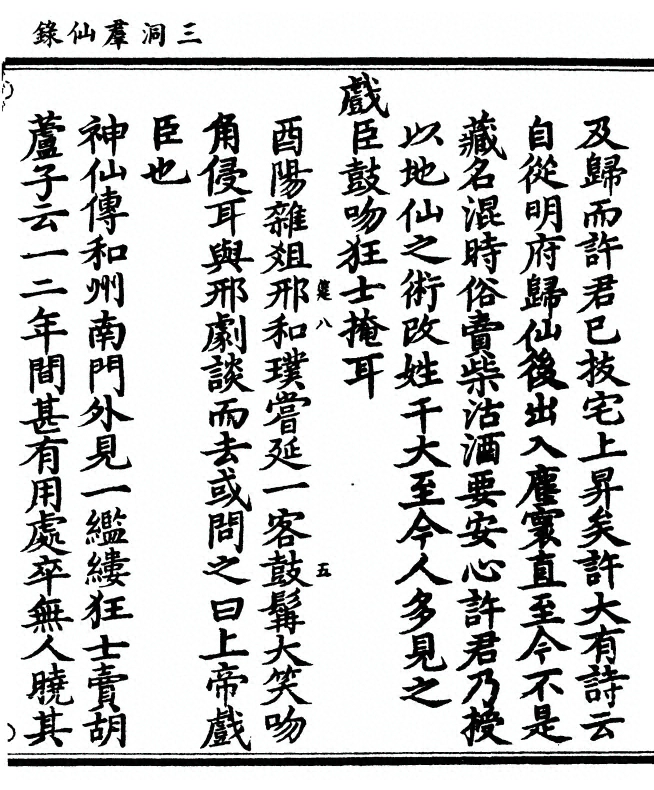 三洞羣仙錄
及歸而許君已拔宅上昇矣許大有詩云
自從明府歸仙後出入塵寰直至今不是
藏名混時俗賣柴沽酒要安心許君乃授
以地仙之術改姓干大至今人多見之
戲臣鼓吻狂士掩耳
酉陽雜爼邢和璞嘗延一客鼓髯大笑吻
八
五
角侵耳與邢劇談而去或問之曰上帝戲
臣也
神仙傳和州南門外見一繿縷狂士賣胡
蘆子云一二年間甚有用處卒無人曉其